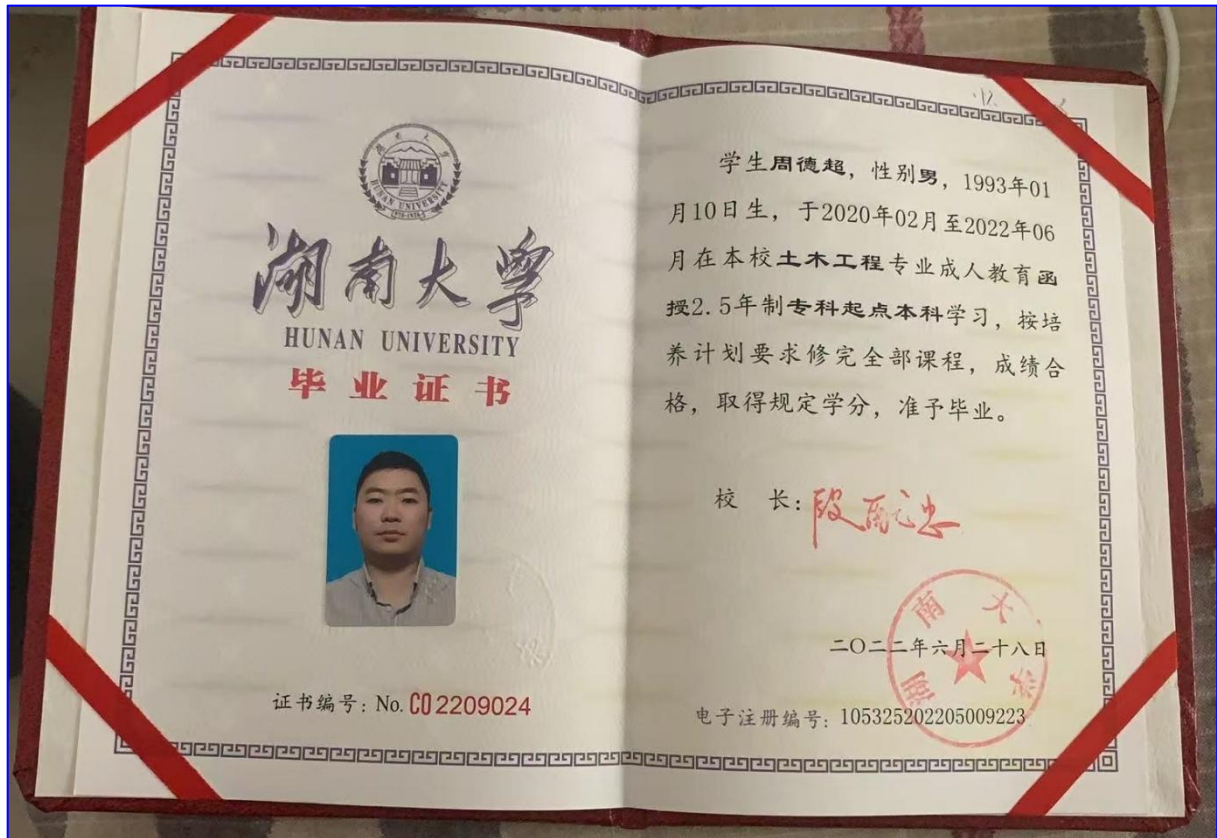 湖南大学
HUNAN UNIVERSITY
湖南大学
HUNAN UNIVERSITY
毕业证书
证书编号：No. C02209024
学生周德超，性别男，1993年01
月10日生，于2020年02月至2022年06
月在本校土木工程专业成人教育函
授2.5年制专科起点本科学习，按培
养计划要求修完全部课程，成绩合
格，取得规定学分，准予毕业。
校 长：
二〇二二年六月二十八日
湖南大学
电子注册编号：105325202205009223